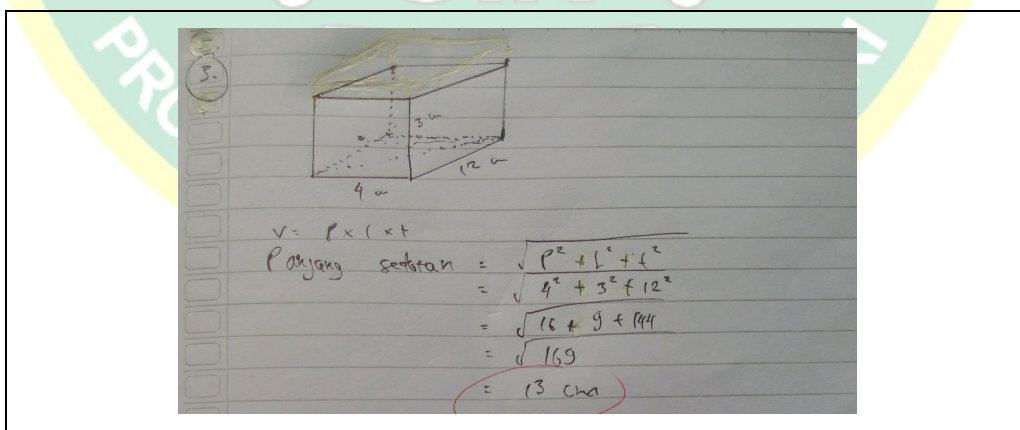 PR
3.
3 cm
12 cm
4 cm
V = P x l x t
Panjang sedotan = √P² + L² + t²
= √4² + 3² + 12²
= √16 + 9 + 144
= √169
= 13 cm